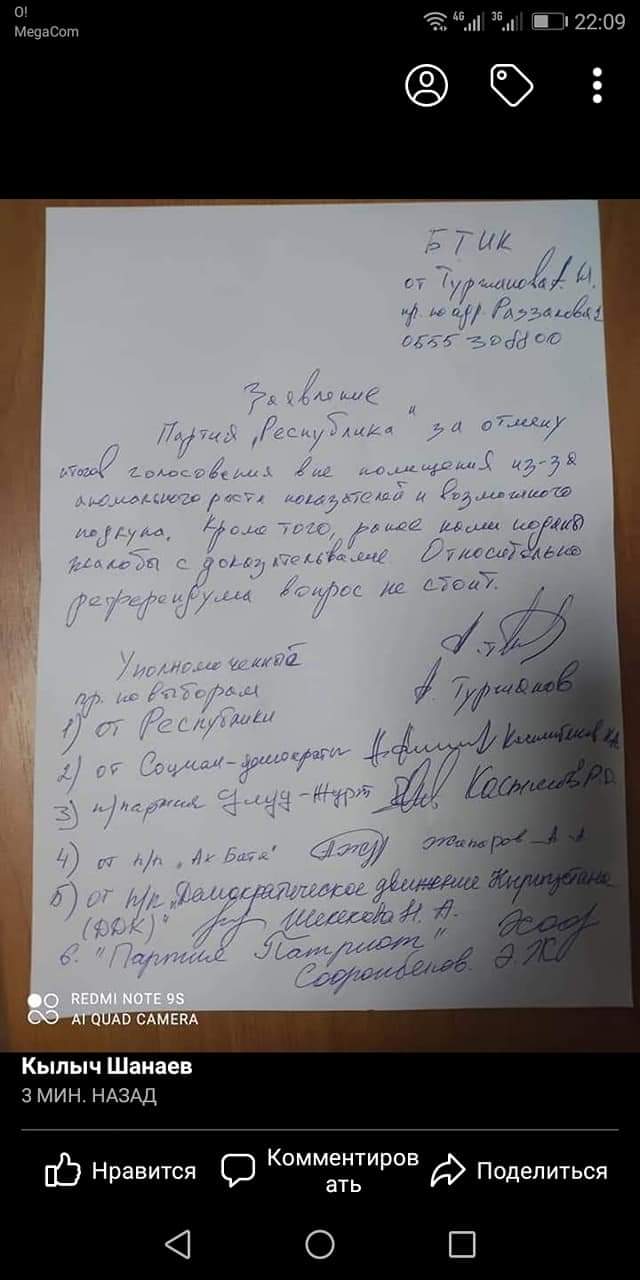 O!
MegaCom
4G 3G 22:09
БТИК
от Турманова А. Н.
пр. по адр. Раззакова
0555 308800
Заявление
Партия „Республика" за отмену
итогов голосования вне помещения из-за
аномального роста показателей и возможного
подкупа. Кроме того, ранее нами поданы
жалобы с доказательвами Относительно
референдума вопрос не стоит.
Уполномоченный
пр. по выборам
А. Турманов
1) от Республики
2) от Социал-демократы
3) п/партия Улуу-Журт
4) от п/п „Ак Бата" Жапаров А А
5) от п/п „Демократическое движение Кыргызстана
(ДДК)" Шекекова Н. А.
6. "Партия Патриот"
Сооронбеков. Э. Ж
REDMI NOTE 9S
AI QUAD CAMERA
Кылыч Шанаев
3 МИН. НАЗАД
Нравится
Комментиров
ать
Поделиться